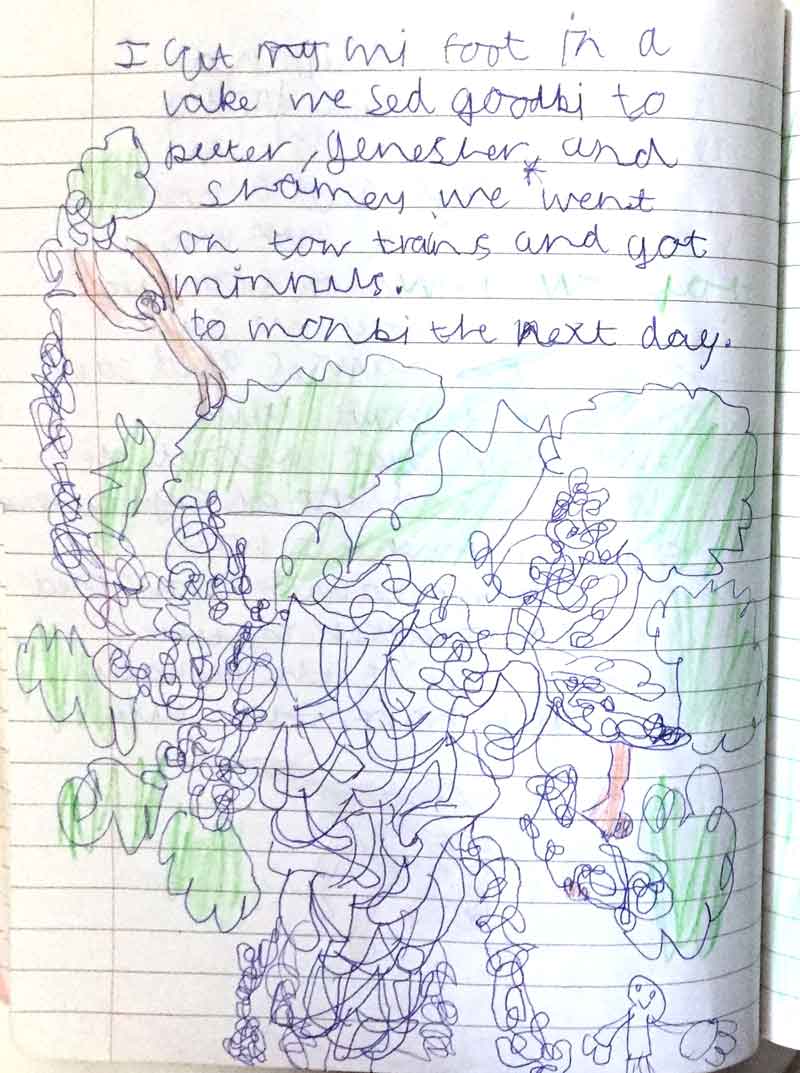 I cut my mi foot in a
vake we sed goodbi to
peeter, genesher, and
shamey we *went
on tow trains and got
minnus.
to monbi the next day.